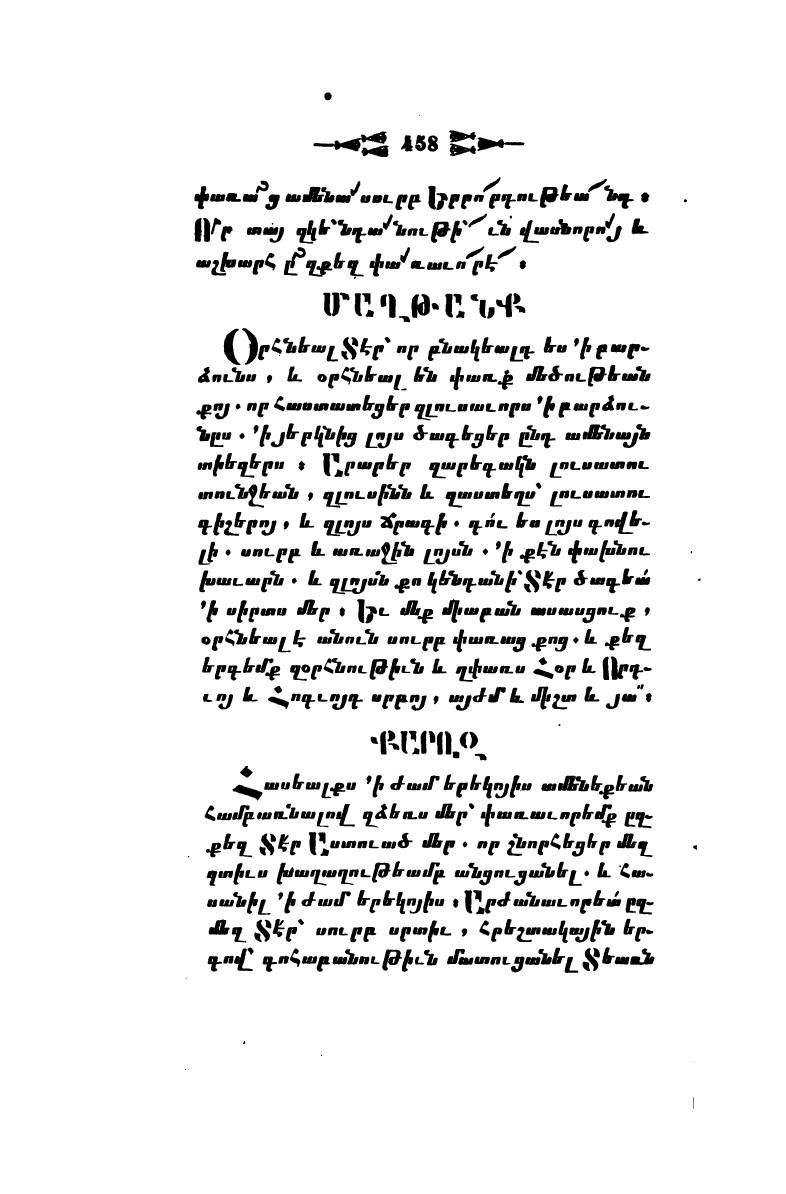 458
փառա՞ց ամենա՛սուրբ Երրո՛րդութեա՛նդ ։
Ո՛ր տայ զկե՝նդա՛նութի՝ւն վասնորո՛յ և
աշխարհ ը՞զքեզ փա՛ռաւո՛րէ՛ ։
ՄԱՂԹԱՆՔ
Օրհնեալ Տէր՝ որ բնակեալդ ես ՚ի բար-
ձունս , և օրհնեալ են փառք մեծութեան
քոյ . որ հաստատեցեր զլուսաւորս ՚ի բարձու-
նըս . ՚ի յերկնից լոյս ծագեցեր ընդ ամենայն
տիեզերս ։ Արարեր զարեգակն լուսատու
տունջեան , զլուսինն և զաստեղս՝ լուսատու
գիշերոյ , և զլոյս ճրագի . դո՛ւ ես լոյս գովե-
լի . սուրբ և առաջին լոյսն . ՚ի քէն փախնու
խաւարն . և զլոյսն քո կենդանի՝ Տէր ծագեա՛
՚ի սիրտս մեր ։ Եւ մեք միաբան ասասցուք ,
օրհնեալ է անուն սուրբ փառաց քոց . և քեզ
երգեմք զօրհնութիւն և զփառս Հօր և Որդ-
ւոյ և Հոգւոյդ սրբոյ , այժմ և միշտ և յա՟ ։
ՔԱՐՈԶ
Հասեալքս ՚ի ժամ երեկոյիս ամենեքեան
համբառնալով զձեռս մեր՝ փառաւորեմք ըզ-
քեզ Տէր Աստուած մեր . որ շնորհեցեր մեզ
զտիւս խաղաղութեամբ անցուցանել . և հա-
սանիլ ՚ի ժամ երեկոյիս ։ Արժանաւորեա՛ ըզ-
մեզ Տէր՝ սուրբ սրտիւ , հրեշտակային եր-
գով՝ գոհաբանութիւն մատուցանել Տեառն